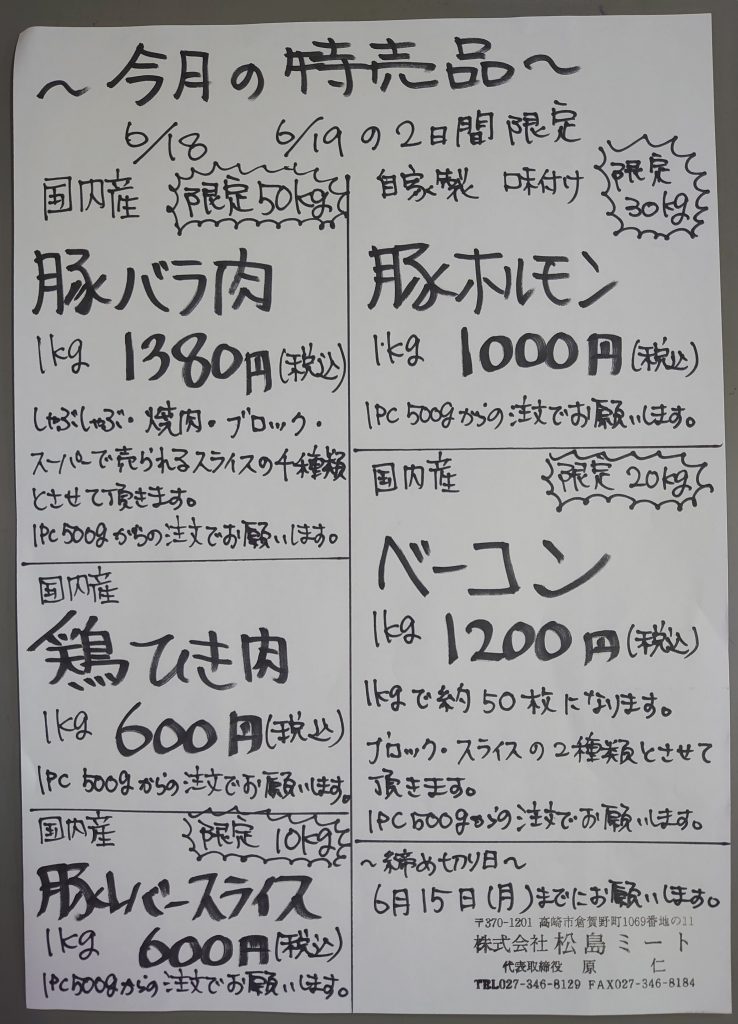 ～今月の特売品～
6/18 6/19の2日間限定
国内産 限定50kg
豚バラ肉
1kg 1380円(税込)
しゃぶしゃぶ・焼肉・ブロック・
スーパーで売られるスライスの4種類
とさせて頂きます。
1PC500gからの注文でお願いします。
国内産
鶏ひき肉
1kg 600円(税込)
1PC 500gからの注文でお願いします。
国内産 限定 10kg
豚レバースライス
1kg 600円(税込)
1PC500gからの注文でお願いします。
自家製 味付け 限定
30kg
豚ホルモン
1kg 1000円(税込)
1PC 500gからの注文でお願いします。
国内産 限定 20kg
ベーコン
1kg 1200円(税込)
1kgで約50枚になります。
ブロック・スライスの2種類とさせて
頂きます。
1PC500gからの注文でお願いします。
～締め切り日～
6月15日(月)までにお願いします。
〒370-1201 高崎市倉賀野町1069番地の11
株式会社 松島ミート
代表取締役 原 仁
TEL027-346-8129 FAX027-346-8184